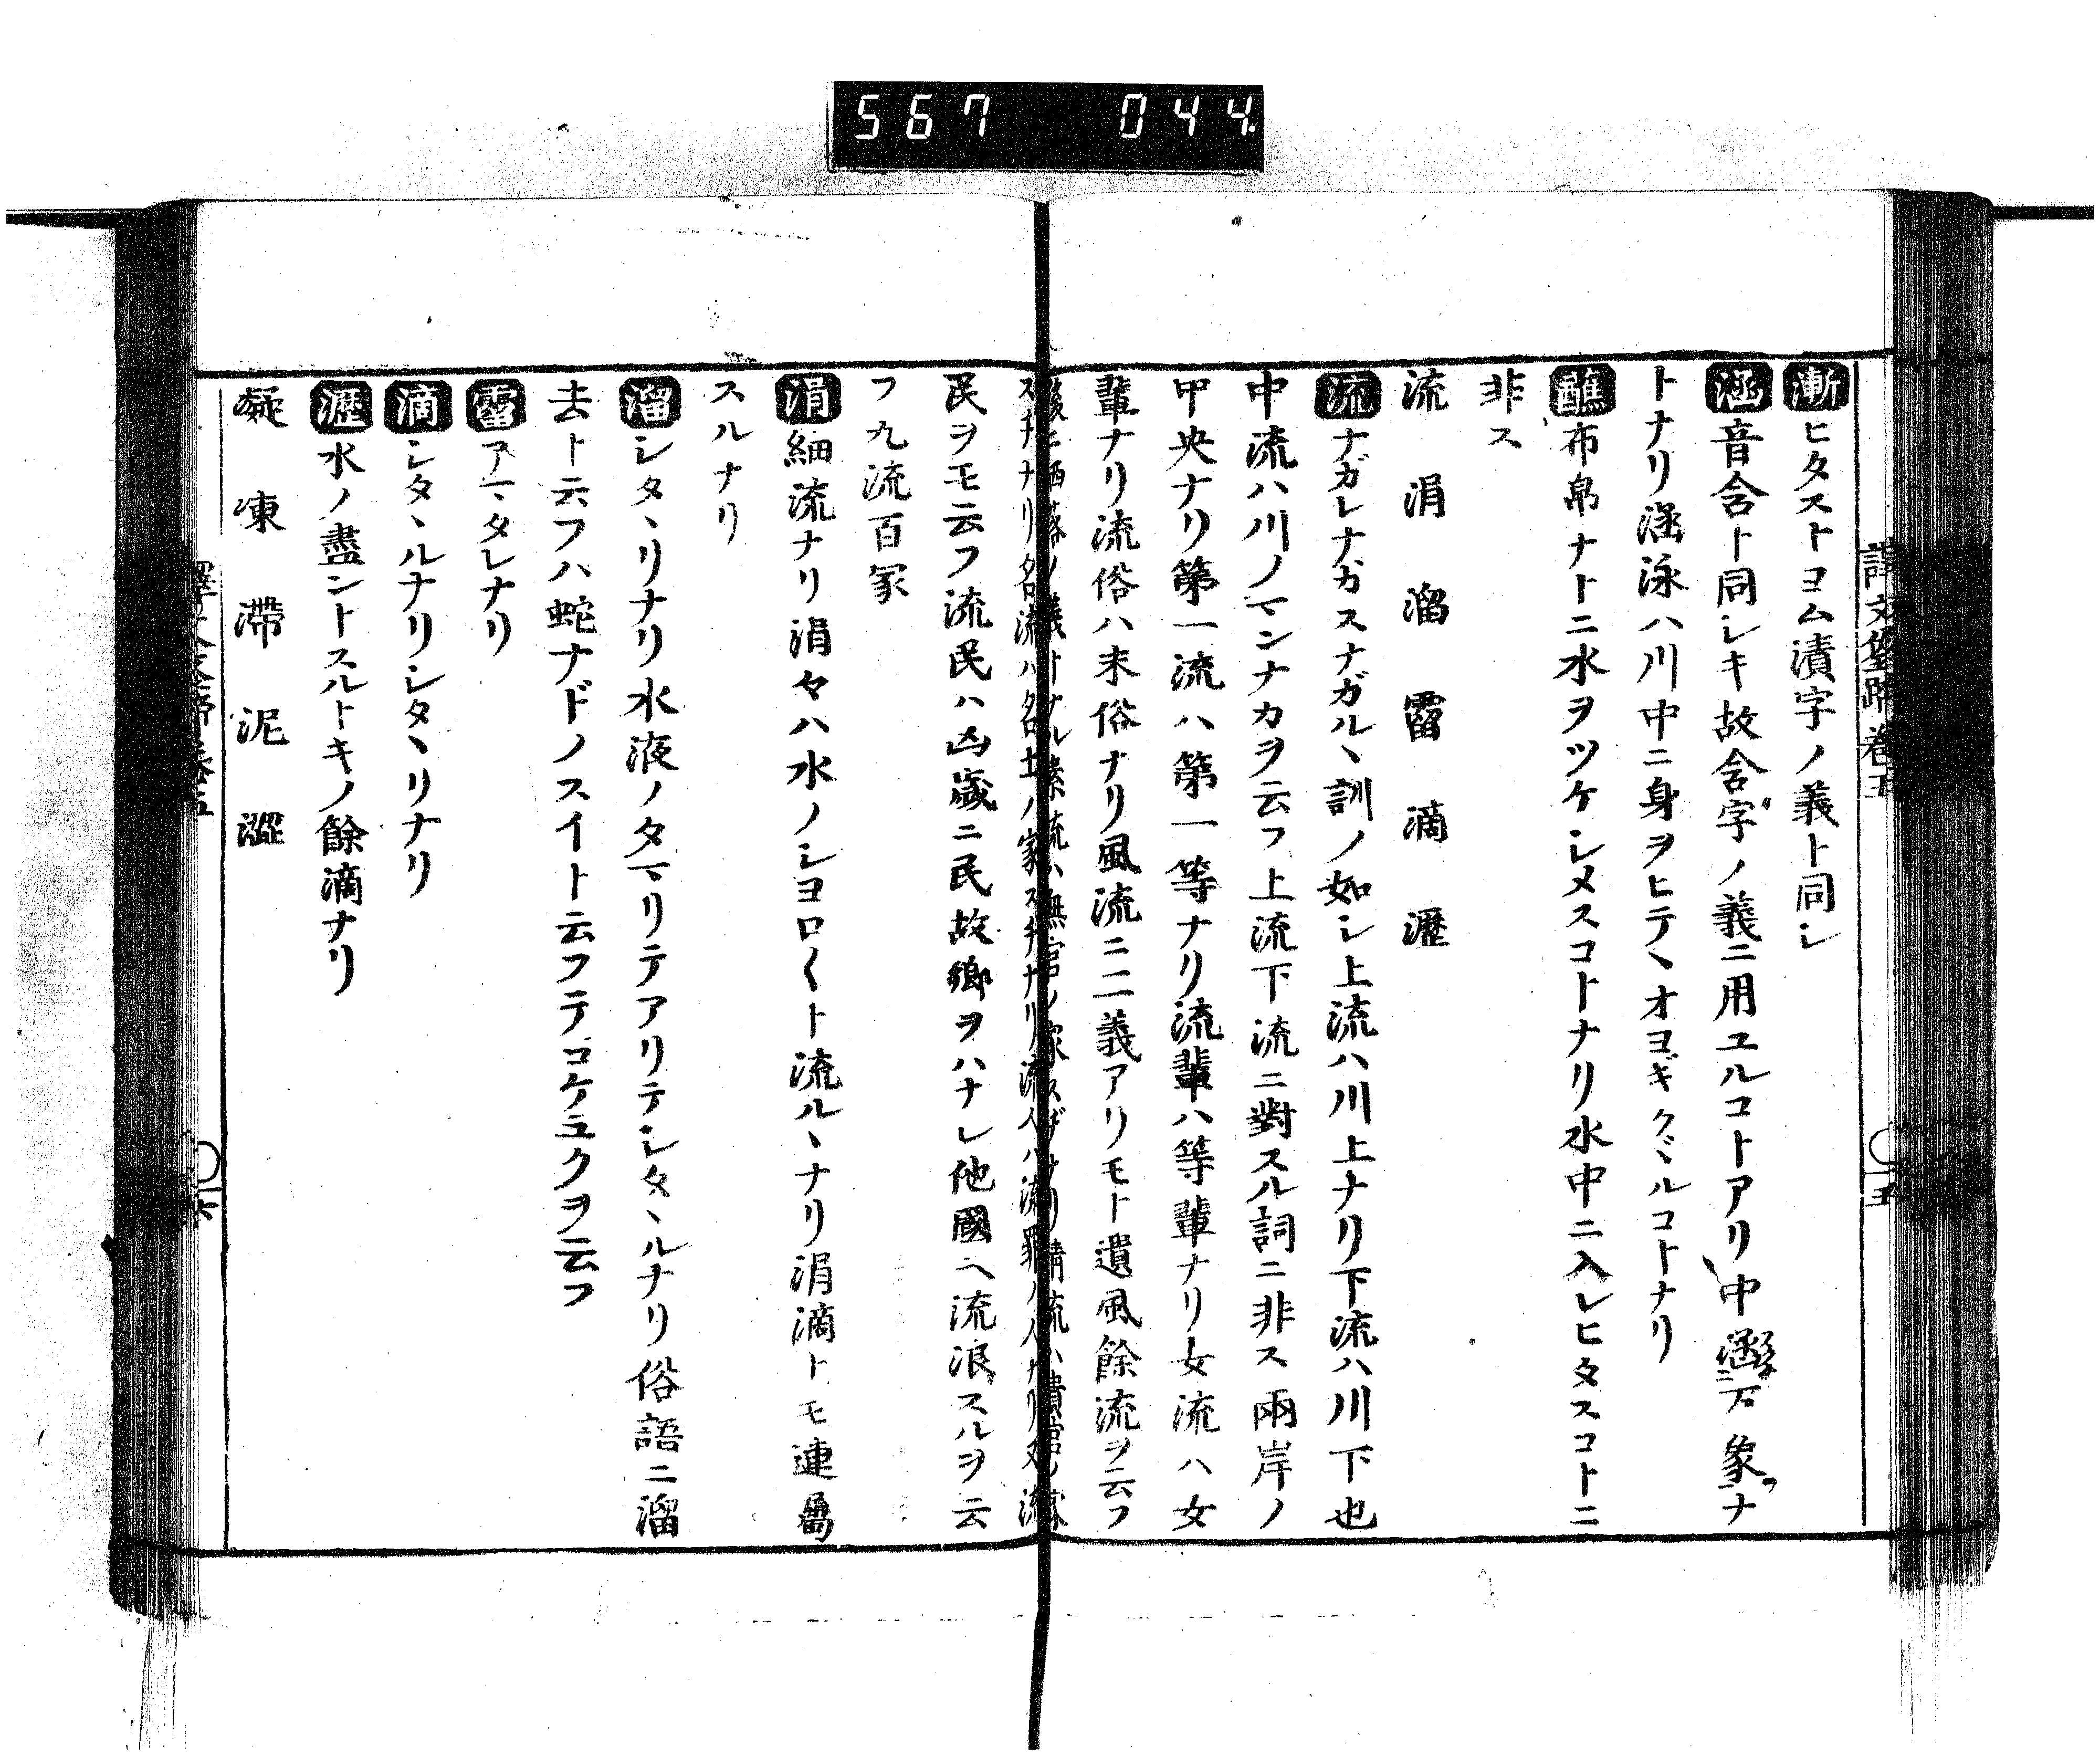 567 044
譯文筌蹄卷五 〇五
漸ヒタストヨム漬字ノ義ト同シ
涵音含ト同シキ故含字ノ義ニ用ユルコトアリ中涵二万象ヲ一ナ
トナリ涵泳ハ川中ニ身ヲヒテヽオヨギクヾルコトナリ
蘸布帛ナトニ水ヲツケシメスコトナリ水中ニ入レヒタスコトニ
非ス
流 涓 溜 霤 滴 瀝
流ナガレナガスナガルヽ訓ノ如シ上流ハ川上ナリ下流ハ川下也
中流ハ川ノマンナカヲ云フ上流下流ニ對スル詞ニ非ス兩岸ノ
中央ナリ第一流ハ第一等ナリ流輩ハ等輩ナリ女流ハ女
輩ナリ流俗ハ末俗ナリ風流ニ二義アリモト遺風餘流ヲ云フ
ノ義ナル素流ハ無官ノ家スヂナリ清流ハ貴官ノ家
スヂナリ名流ハ名士ノ家スヂナリ流人ハ流罪ノ人ナリ又流
民ヲモ云フ流民ハ凶歲ニ民故鄉ヲハナレ他國ヘ流浪スルヲ云
フ九流百家
涓細流ナリ涓々ハ水ノシヨロ〱ト流ルヽナリ涓滴トモ連屬
スルナリ
溜シタヽリナリ水液ノタマリテアリテシタヽルナリ俗語ニ溜
去ト云フハ蛇ナドノスイト云フテコケユクヲ云フ
霤アマタレナリ
滴シタヽルナリシタヽリナリ
瀝水ノ盡ントスルトキノ餘滴ナリ
凝 凍 滯 泥 澀
譯文筌蹄卷五 〇六